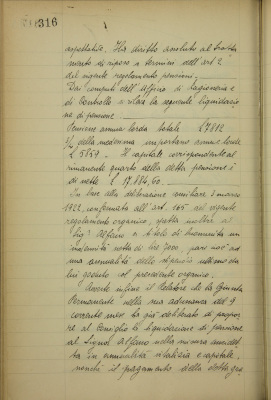 316
aspettativa. Ha diritto assoluto al tratta
mento di riposo a termini dell'art. 2
del vigente regolamento pensioni.
Dai computi dell'Ufficio di Ragioneria e
di Controllo si ha la seguente liquidazio
ne di pensione
Pensione annua lorda totale £ 7812
¾ della medesima importano annue lorde
£ 5859. Il capitale corrispondente al
rimanente quarto della detta pensione è
di nette £ 17.884,60.
In base alla deliberazione consiliare 2 marzo
1922, confermata all'art. 165 del vigente
regolamento organico, spetta inoltre al
Sig. Alfano a titolo di buonuscita un'
indennità netta di lire 7000 pari cioè ad
una annualità dello stipendio ultimo da
lui goduto col precedente organico.
Avverte infine il Relatore che la Giunta
Permanente nella sua adunanza del 9
corrente mese ha già deliberato di propor
re al Consiglio la liquidazione di pensione
al Signor Alfano nella misura anzidet
ta in annualità vitalizia e capitale,
nonché il pagamento della detta gra